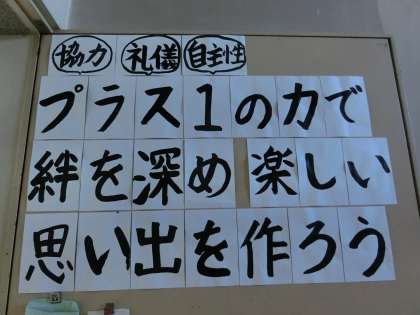 協力 礼儀 自主性
プラス1の力で
絆を深め 楽しい
思い出を作ろう